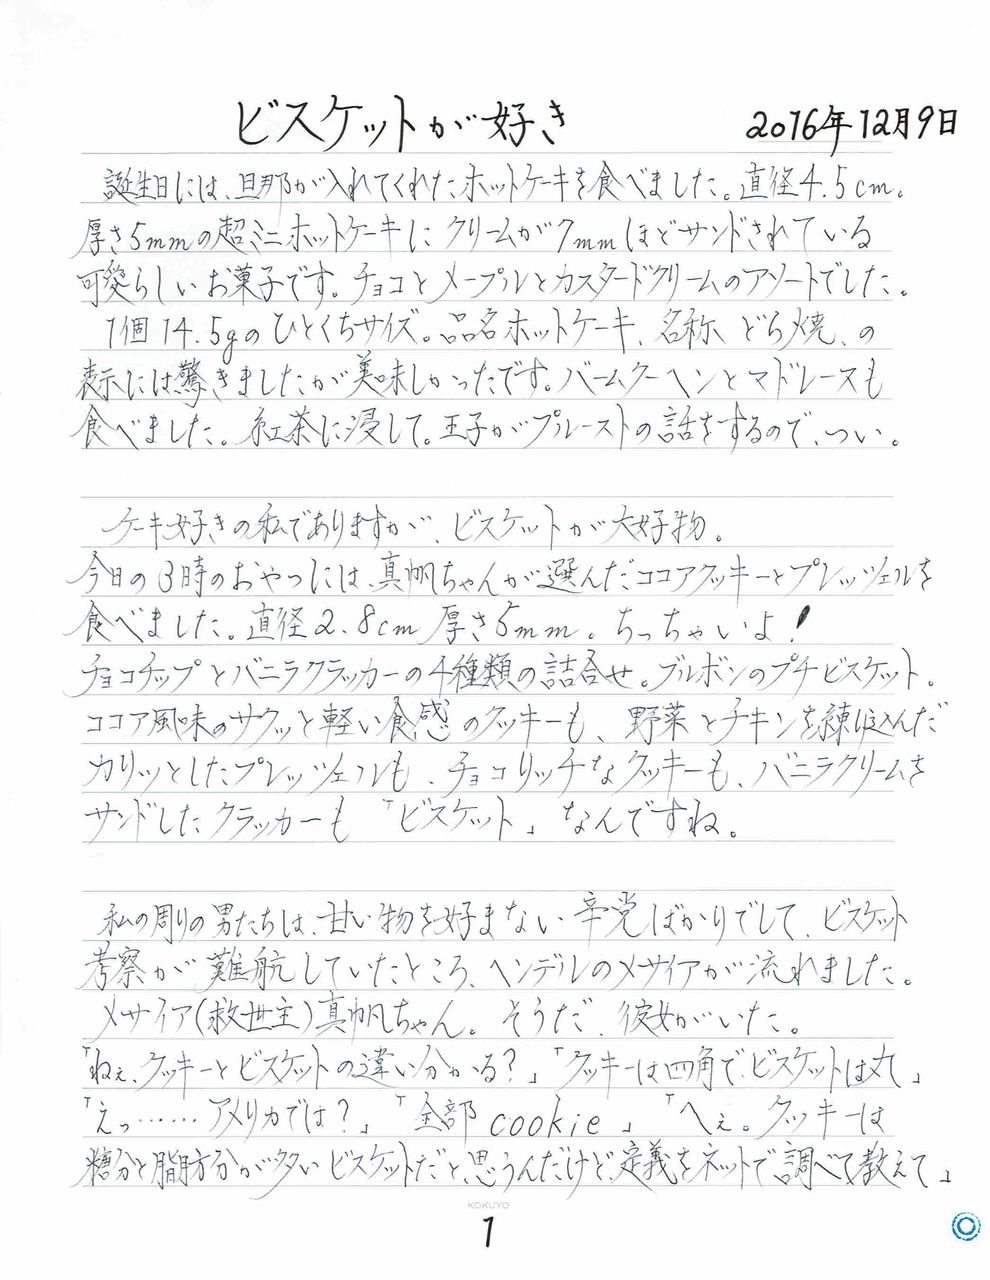 ビスケットが好き
2016年12月9日
誕生日には、旦那が入れてくれたホットケーキを食べました。直径4.5cm。
厚さ5mmの超ミニホットケーキにクリームが7mmほどサンドされている
可愛らしいお菓子です。チョコとメープルとカスタードクリームのアソートでした。
1個14.5gのひとくちサイズ。品名ホットケーキ、名称 どら焼、の
表示には驚きましたが美味しかったです。バームクーヘンとマドレースも
食べました。紅茶に浸して。王子がプルーストの話をするので、つい。
ケーキ好きの私でありますが、ビスケットが大好物。
今日の3時のおやつには、真帆ちゃんが選んだココアクッキーとプレッツェルを
食べました。直径2.8cm 厚さ5mm。ちっちゃいよ!
チョコチップとバニラクラッカーの4種類の詰合せ。ブルボンのプチビスケット。
ココア風味のサクッと軽い食感のクッキーも、野菜とチキンを練り込んだ
カリッとしたプレッツェルも、チョコリッチなクッキーも、バニラクリームを
サンドしたクラッカーも「ビスケット」なんですね。
私の周りの男たちは、甘い物を好まない辛党ばかりでして、ビスケット
考察が難航していたところ、ヘンデルのメサイアが流れました。
メサイア(救世主)真帆ちゃん。そうだ、彼女がいた。
「ねぇ、クッキーとビスケットの違い分かる?」「クッキーは四角で、ビスケットは丸」
「えっ……アメリカでは?」「全部cookie」「へぇ。クッキーは
糖分と脂肪分が多いビスケットだと思うんだけど、定義をネットで調べて教えて」
KOKUYO
1